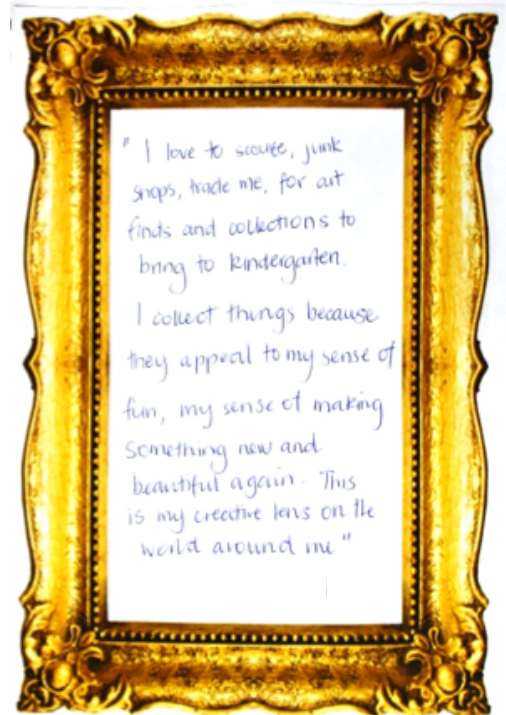 " I love to scoure, junk
shops, trade me, for art
finds and collections to
bring to kindergarten.
I collect things because
they appeal to my sense of
fun, my sense of making
something new and
beautiful again. This
is my creative lens on the
world around me"